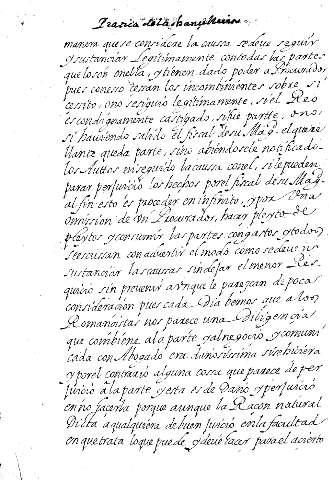 Pratica de la Chancilleria
manera que se considere la caussa se deve seguir
y sustanciar Legitimamente con todas las partes
que lo son en ella, y tienen dado poder a Procurador
pues con esso cesan los incombinientes sobre si
cessito, o no se siguio legitimamente, si el Reo
es condignamente castigado, si fue parte, o no,
si haviendo salido el fiscal de su Mag.d el quere
llante queda parte, sino abiendosele notificado
los Auttos ni seguido la caussa con el, si le pueden
parar perjuicio los hechos por el fiscal de su Mag.
al fin esto es proceder en infinito, y por Una
omission de Un Procurador, hacer pleyto de
pleytos y consumir las partes con gastos y todo
se escussan con advertir el modo como se deven
sustanciar las caussas sin dejar el menor Res
quicio sin prevenir aunque le paresca de poca
consideración pues cada Dia bemos que a los
Romanistas nos parece una Diligencia
que combiene a la parte y al negocio, y comuni
cada con Abogado era dañosissima si se hiciera
y por el contrario alguna cossa que parece de per
juicio a la parte, y esta es de Daño, y perjuicio
en no hacerla porque aunque la Raçon natural
Dicta a qualquiera de buen juicio en la facultad
en que trata lo que puede, y deve hacer para el acierto